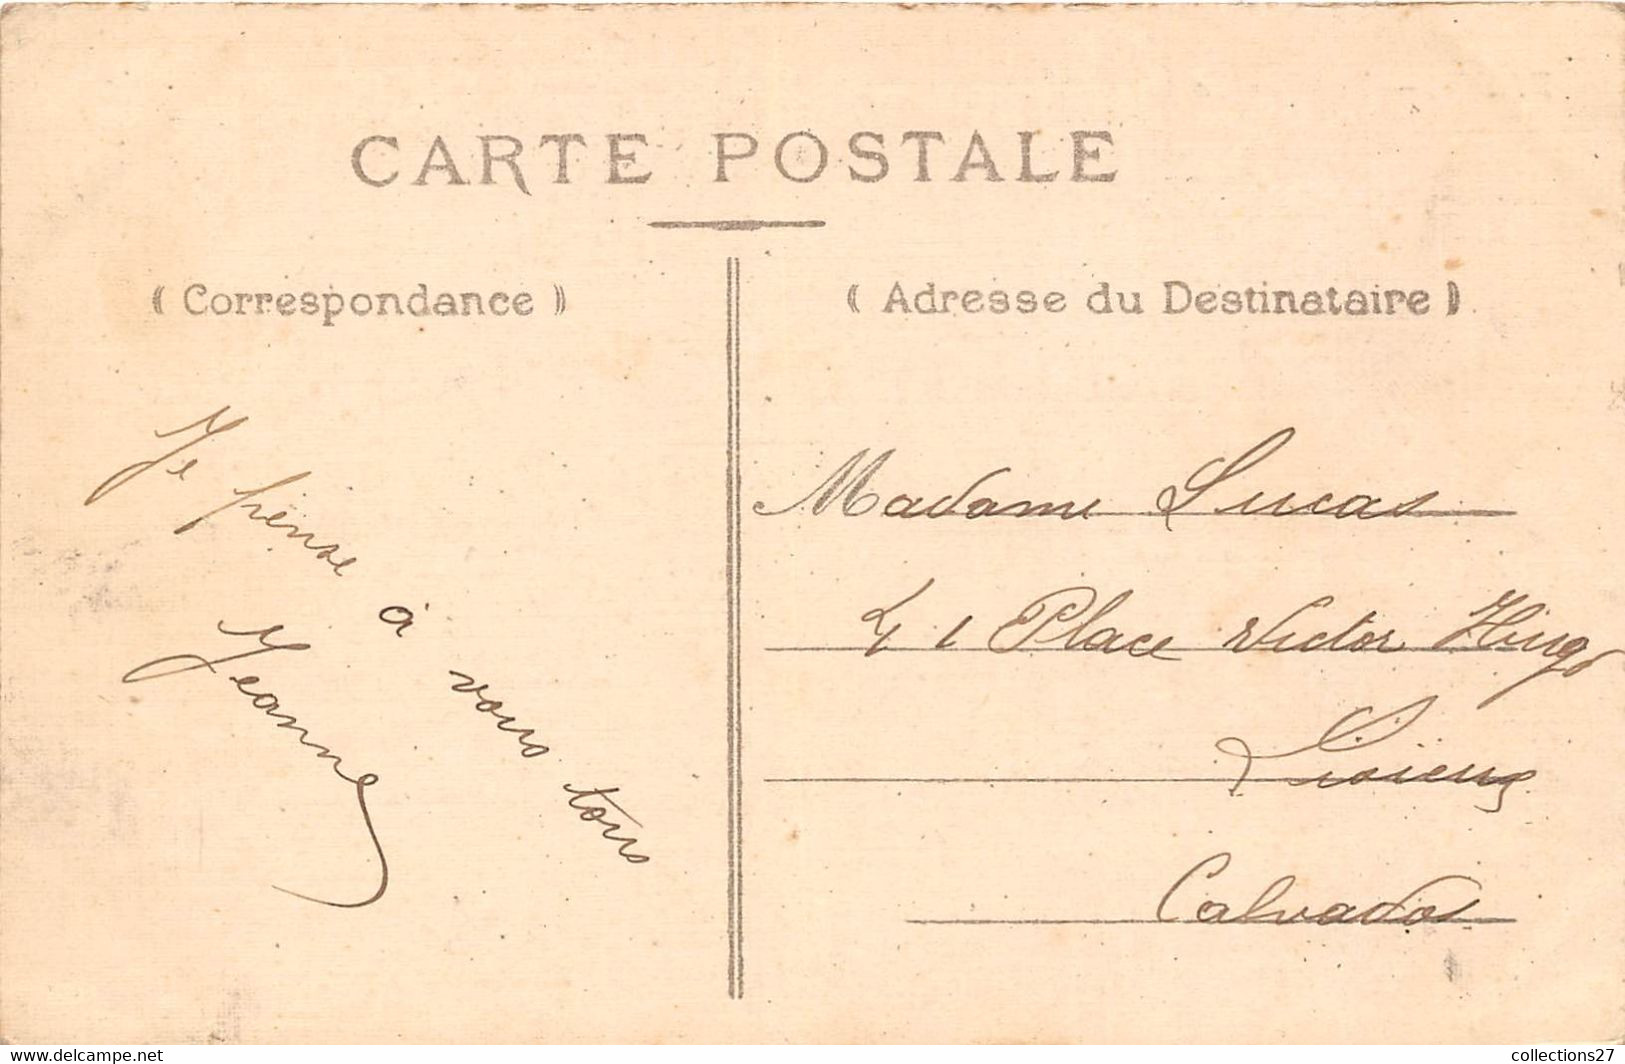 CARTE POSTALE
(Correspondance)
Je pense à vous tous
Jeanne
(Adresse du Destinataire)
Madame Lucas
41 Place Victor Hugo
Lisieux
Calvados
www.delcampe.net
collections27